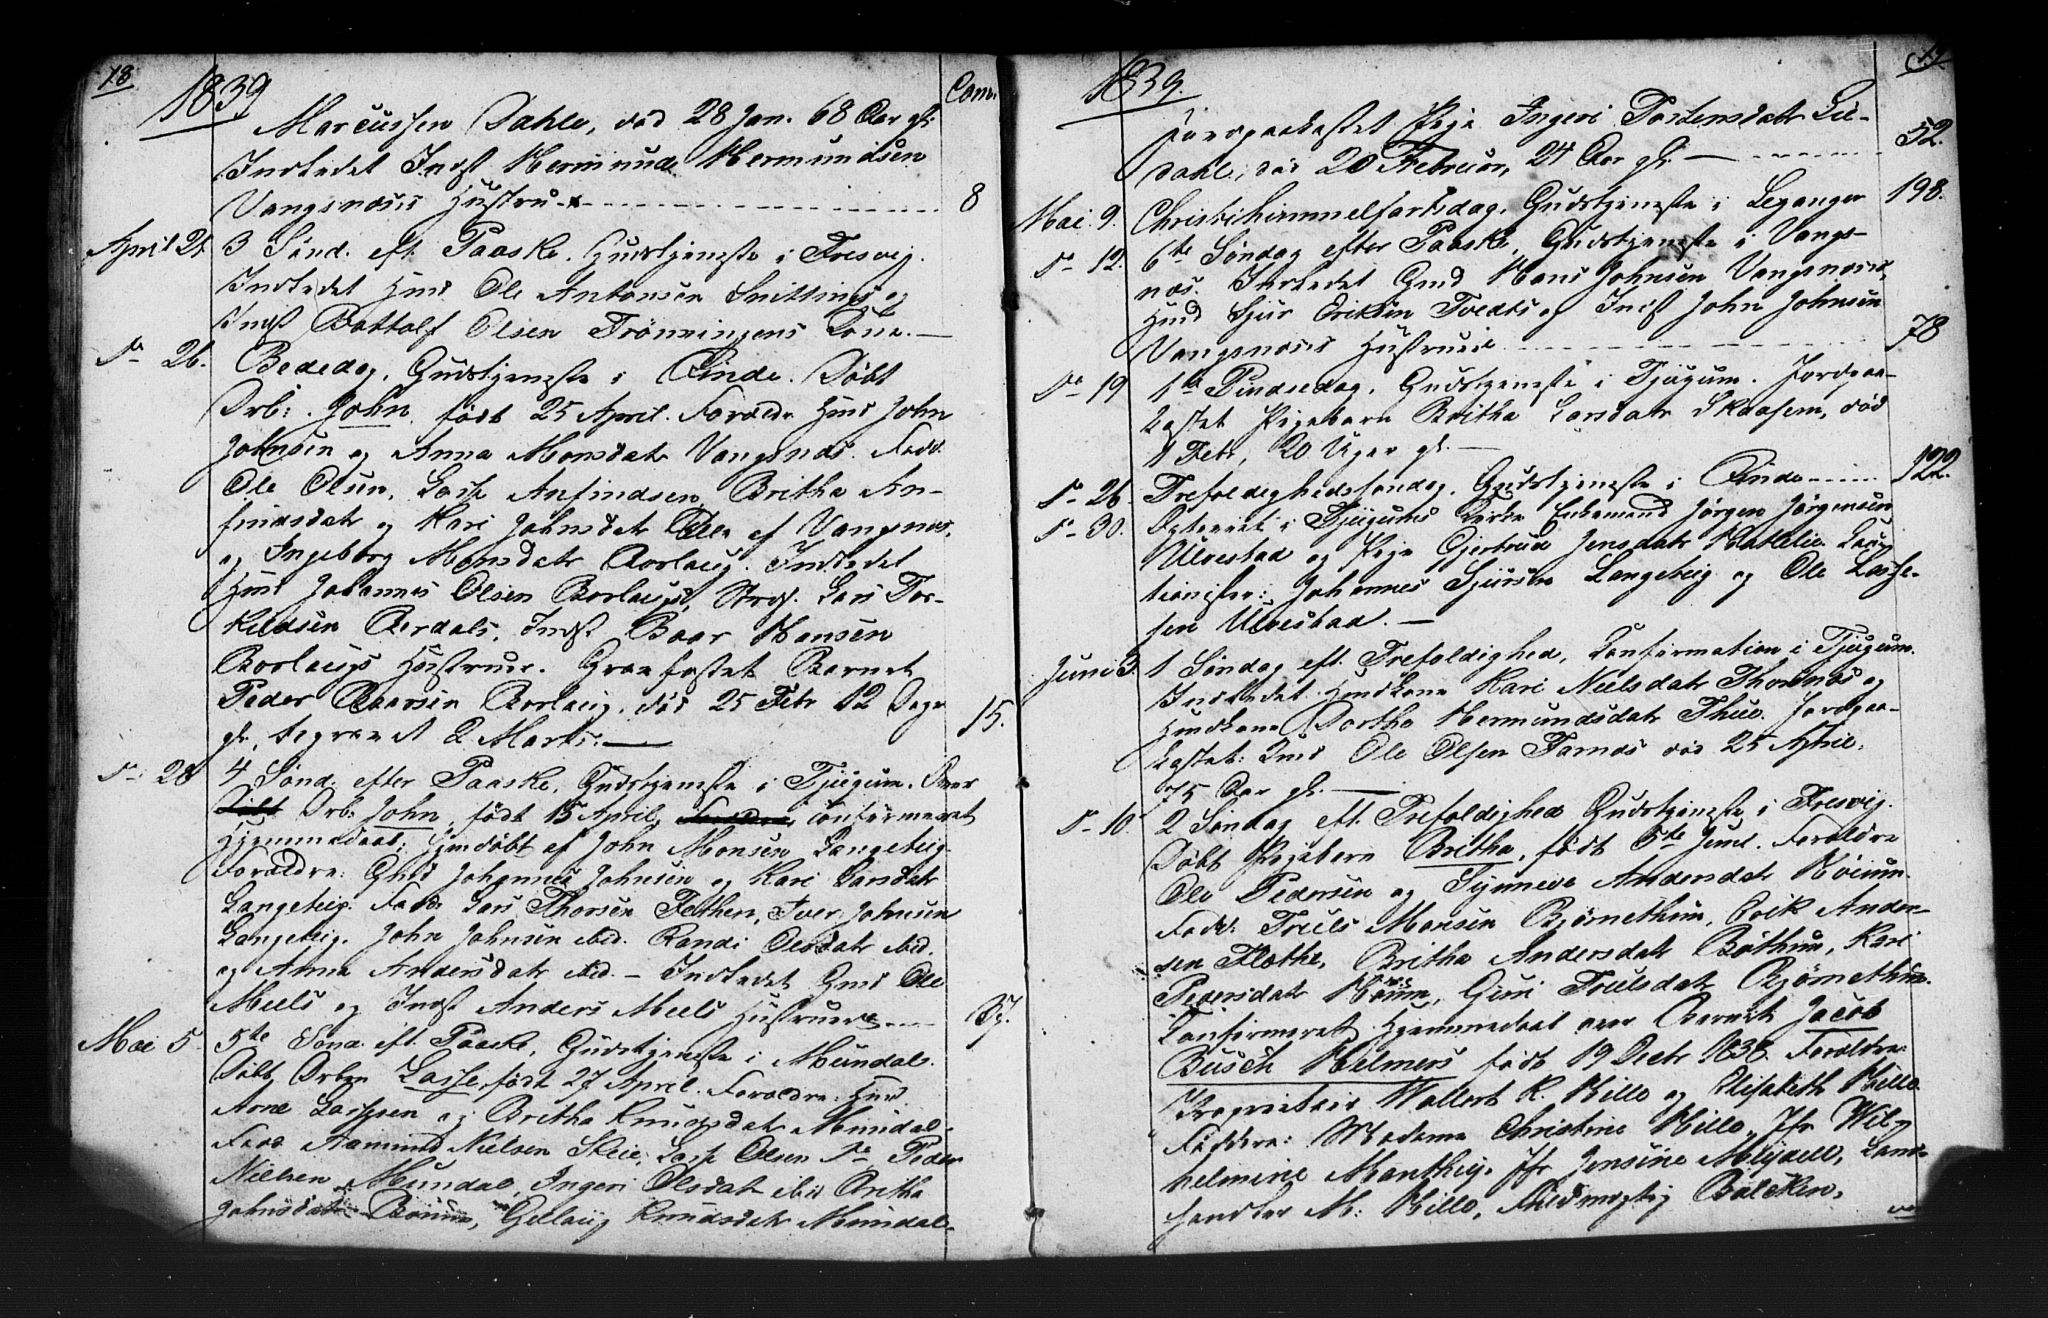 18
1839 Comm.
Marcussen Dahle, død 28 Jan. 68 Aar gl.
Indledet Indst Hermund Hermundsen
Vangsnæses Hustru 8
April 21. 3 Sønd. eft. Paaske. Gudstjeneste i Fresvig.
Indledet Hmd Ole Antonsen Snittings og
Indst Bottolf Olsen Trønningens Kone. —
D– 26. Bededag, Gudstjeneste i Qinde. Døbt
Drb: John, født 25 April. Forældre Hmd John
Johnsen og Anna Monsdatr Vangsnæs. Fadd.
Ole Olsen, Lasse Anfindsen, Britha An-
findsdatr og Kari Johnsdatr Alle af Vangsnæs,
og Ingeborg Monsdatr Borlaug. Indledet
Hmd Johannes Olsen Borlaugs, Lars Tor-
kildsen Aardals, Indst Baar Hansen
Borlaugs Hustruer. Graffæstet Barnet
Peder Baarsen Borlaug, død 25 Febr 12 Dage
gl., begravet 2 Marts. — 15.
D– 28 4 Sønd. efter Paaske, Gudstjeneste i Tjugum. Over
Drb: John, født 15 April, confirmeret
Hjemmedaab; hjemdøbt af John Monsen Langeteig.
Forældre: Gmd Johannes Johnsen og Kari Larsdatr
Langeteig. Fadd. Lars Thorsen Fethen, Iver Johnsen
Langeteig. John Johnsen ibid. Randi Olsdatr ibid.
og Anna Andersdatr ibid. – Indledet Gmd Ole
Meels og Indst Anders Meels Hustruer 37.
Mai 5 5te Sønd. eft. Paaske, Gudstjeneste i Mundal.
Døbt Drbn Lasse, født 27 April. Forældre: Hmd
Arne Lassesen og Britha Knudsdatr Mundal.
Fadd Aamund Nielsen Skeie, Lasse Olsen Do Peder
Nielsen Mundal, Ingeri Olsdatr ibid Britha
Johnsdatr Gjellaug Knudsdatr Mundal.
19
1839.
Jordpaakastet Pige Ingeri Torstensdatr Lie-
dahl, død 20 Februar, 24 Aar gl. — 52.
Mai 9. Christihimmelfartsdag, Gudstjeneste i Leganger 198.
D– 12. 6te Søndag efter Paaske, Gudstjeneste i Vangs-
næs. Indledet Gmd Hans Johnsen Vangsnæses,
Hmd Sjur Eriksen Tvedts og Indst John Johnsen
Vangsnæses Hustruer 78
D– 19 1te Pindsedag, Gudstjeneste i Tjugum. Jordpaa-
kastet Pigebarn Britha Larsdatr Skaasem, død
1 Febr, 20 Uger gl. —
D– 26 Trefoldighedssøndag, Gudstjeneste i Qinde 122.
D– 30. Copuleret i Tjugums Kirke Enkemand Jørgen Jørgensen
Ulvestad og Pige Gjertrud Jensdatr Hatlelie. Cau-
tionister: Johannes Sjursen Langeteig og Ole Lasse-
sen Ulvestad. —
Juni 3. 1 Søndag eft. Trefoldighed, Confirmation i Tjugum.
Indledet Hmdkone Kari Nielsdatr Thornæs og
Hmdkone Dortha Hermundsdatr Thue. Jordpaa-
kastet: Kmd Ole Olsen Farnæs død 25 April,
75 Aar gl. —
D– 10. 2 Søndag eft. Trefoldighed Gudstjeneste i Fresvig.
Døbt Pigebarn Britha, født 5te Juni. Forældre
Ole Pedersen og Synneve Andersdatr Nøium.
Fadd: Truls Monsen Bjørnethun, Erik Ander-
sen Flæthe, Britha Andersdatr Bøthun, Kari
Pedersdatr Guri Trulsdatr Bjørnethun.
Confirmeret Hjemmedaab over Barnet Jacob
Busch Helmers født 19 Decbr 1838. Forældre:
Proprietair Wollert K. Hille og Elisabeth Hille
Faddere: Madame Christine Hille, Jfr Wil-
helmine Manthey, Jfr Jensine Meydell, Land-
handler M. Hille, Fuldmægtig Balchen,